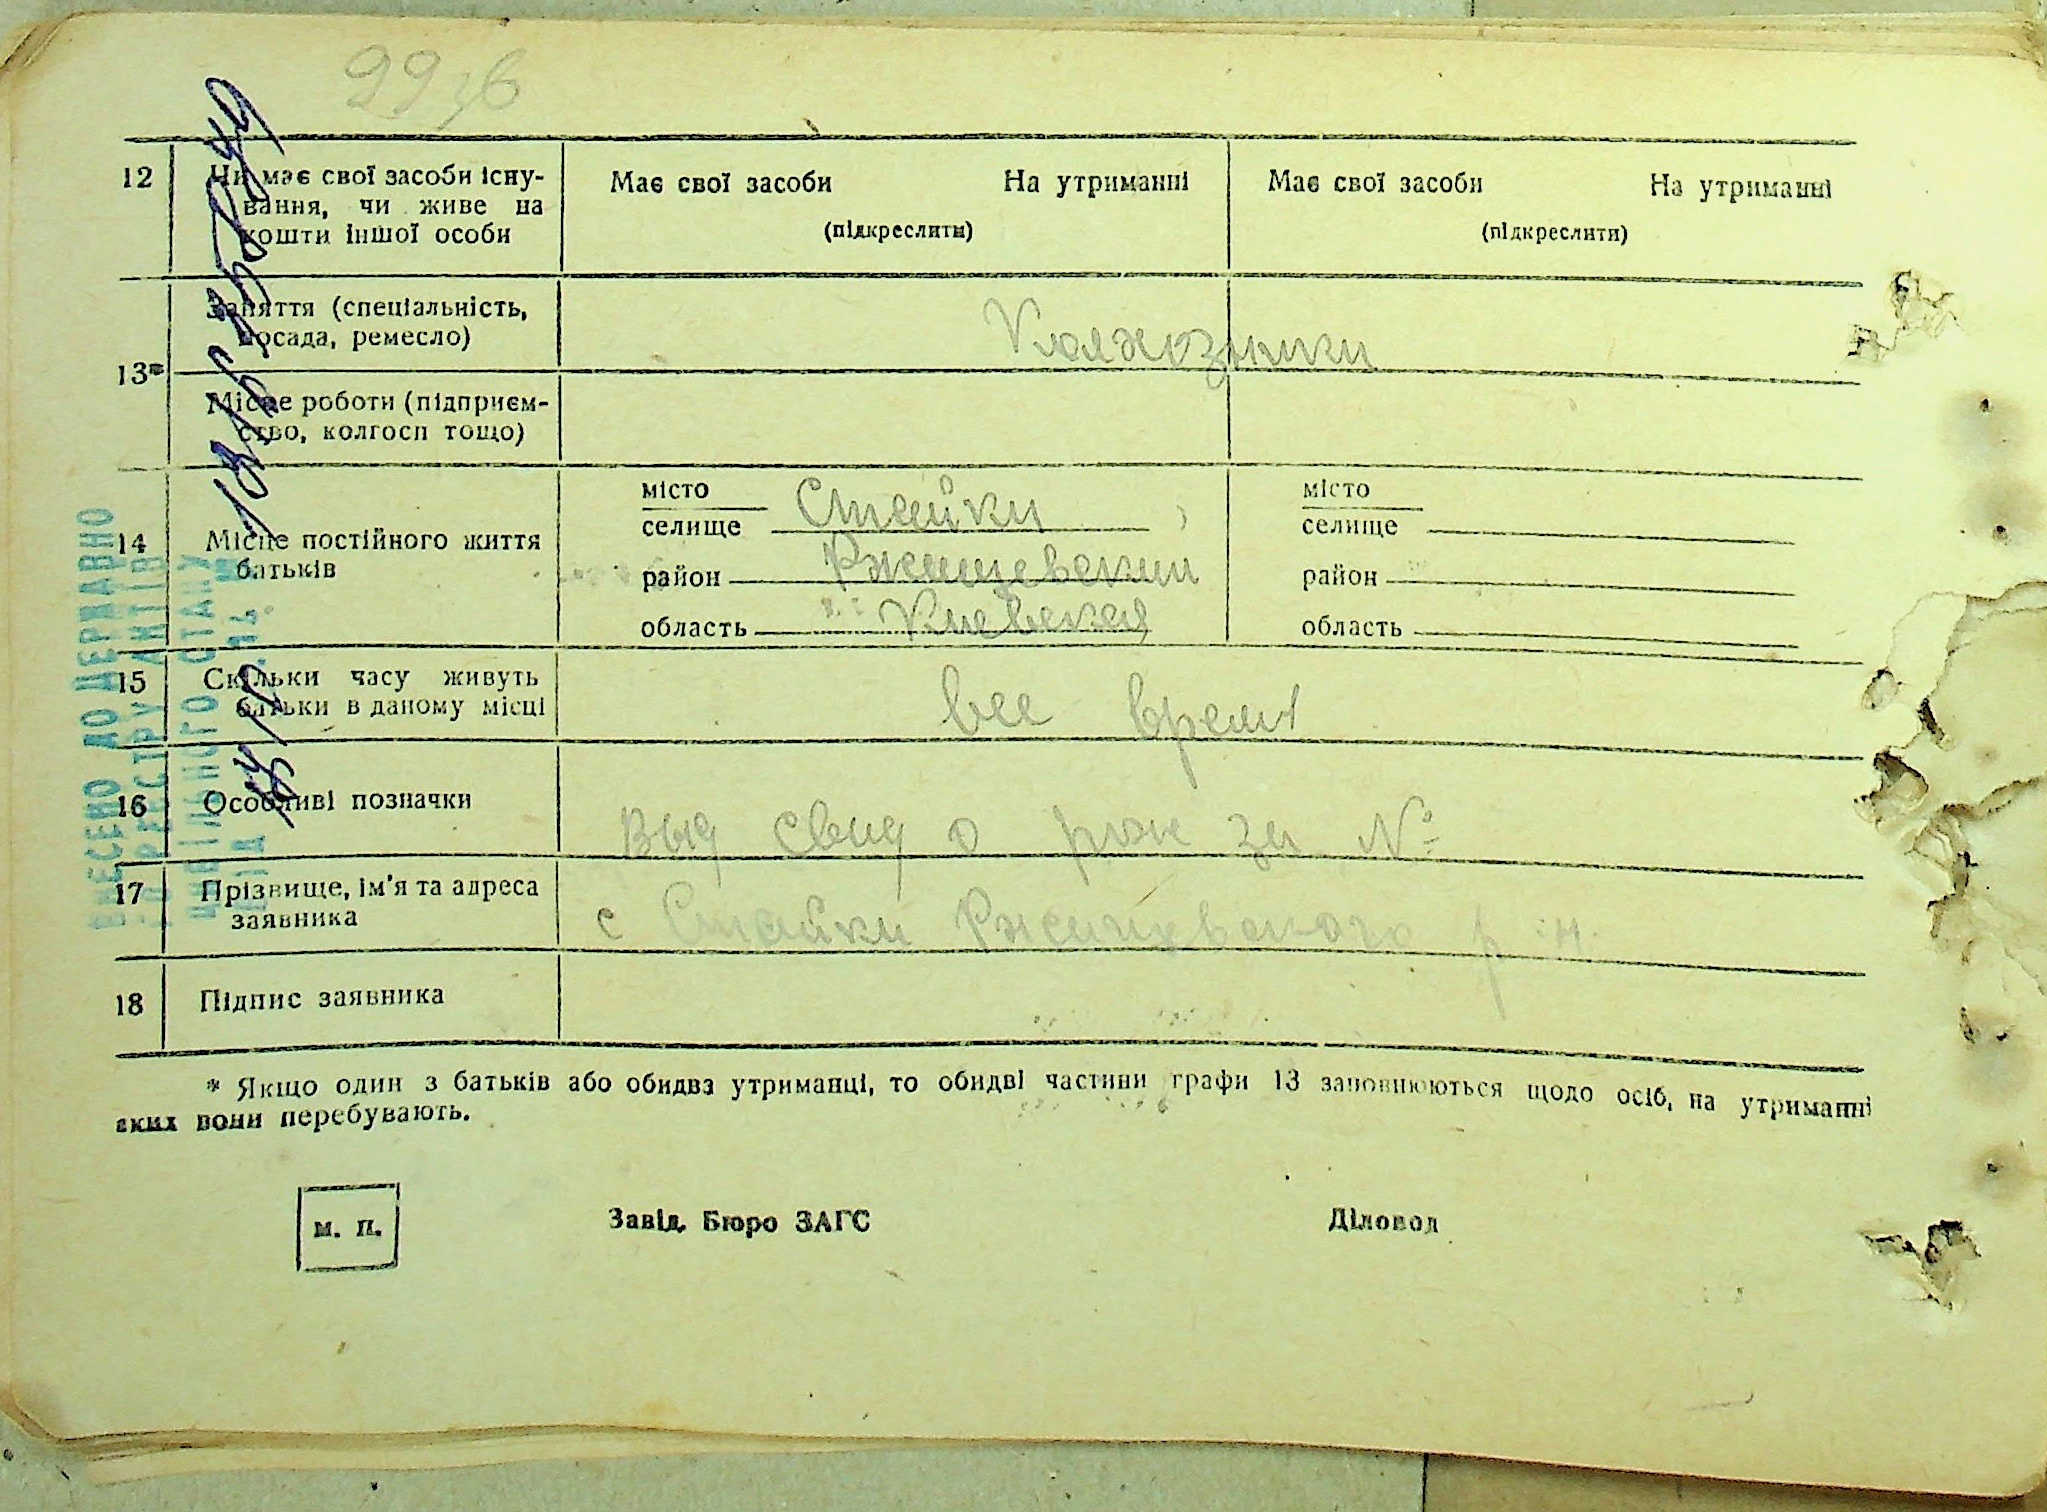 99 зв
12 Чи має свої засоби існу-
вання, чи живе на
кошти іншої особи
Має свої засоби На утриманні
(підкреслити)
Має свої засоби На утриманні
(підкреслити)
13*
Заняття (спеціальність,
посада, ремесло)
Колхозники
Місце роботи (підприєм-
ство, колгосп тощо)
14 Місце постійного життя
батьків
місто
селище Стайки
район Ржищевский
область Киевская
місто
селище
район
область
15 Скільки часу живуть
батьки в даному місці
все время
16 Особливі позначки
Выд свид о рож за №
17 Прізвище, ім'я та адреса
заявника
с Стайки Ржищевского р-н
18 Підпис заявника
* Якщо один з батьків або обидва утриманці, то обидві частини графи 13 заповнюються щодо осіб, на утриманні
яких вони перебувають.
м. п.
Завід. Бюро ЗАГС
Діловод
ВНЕСЕНО ДО ДЕРЖАВНО
ГО РЕЄСТРУ АКТІВ
ЦИВІЛЬНОГО СТАНУ